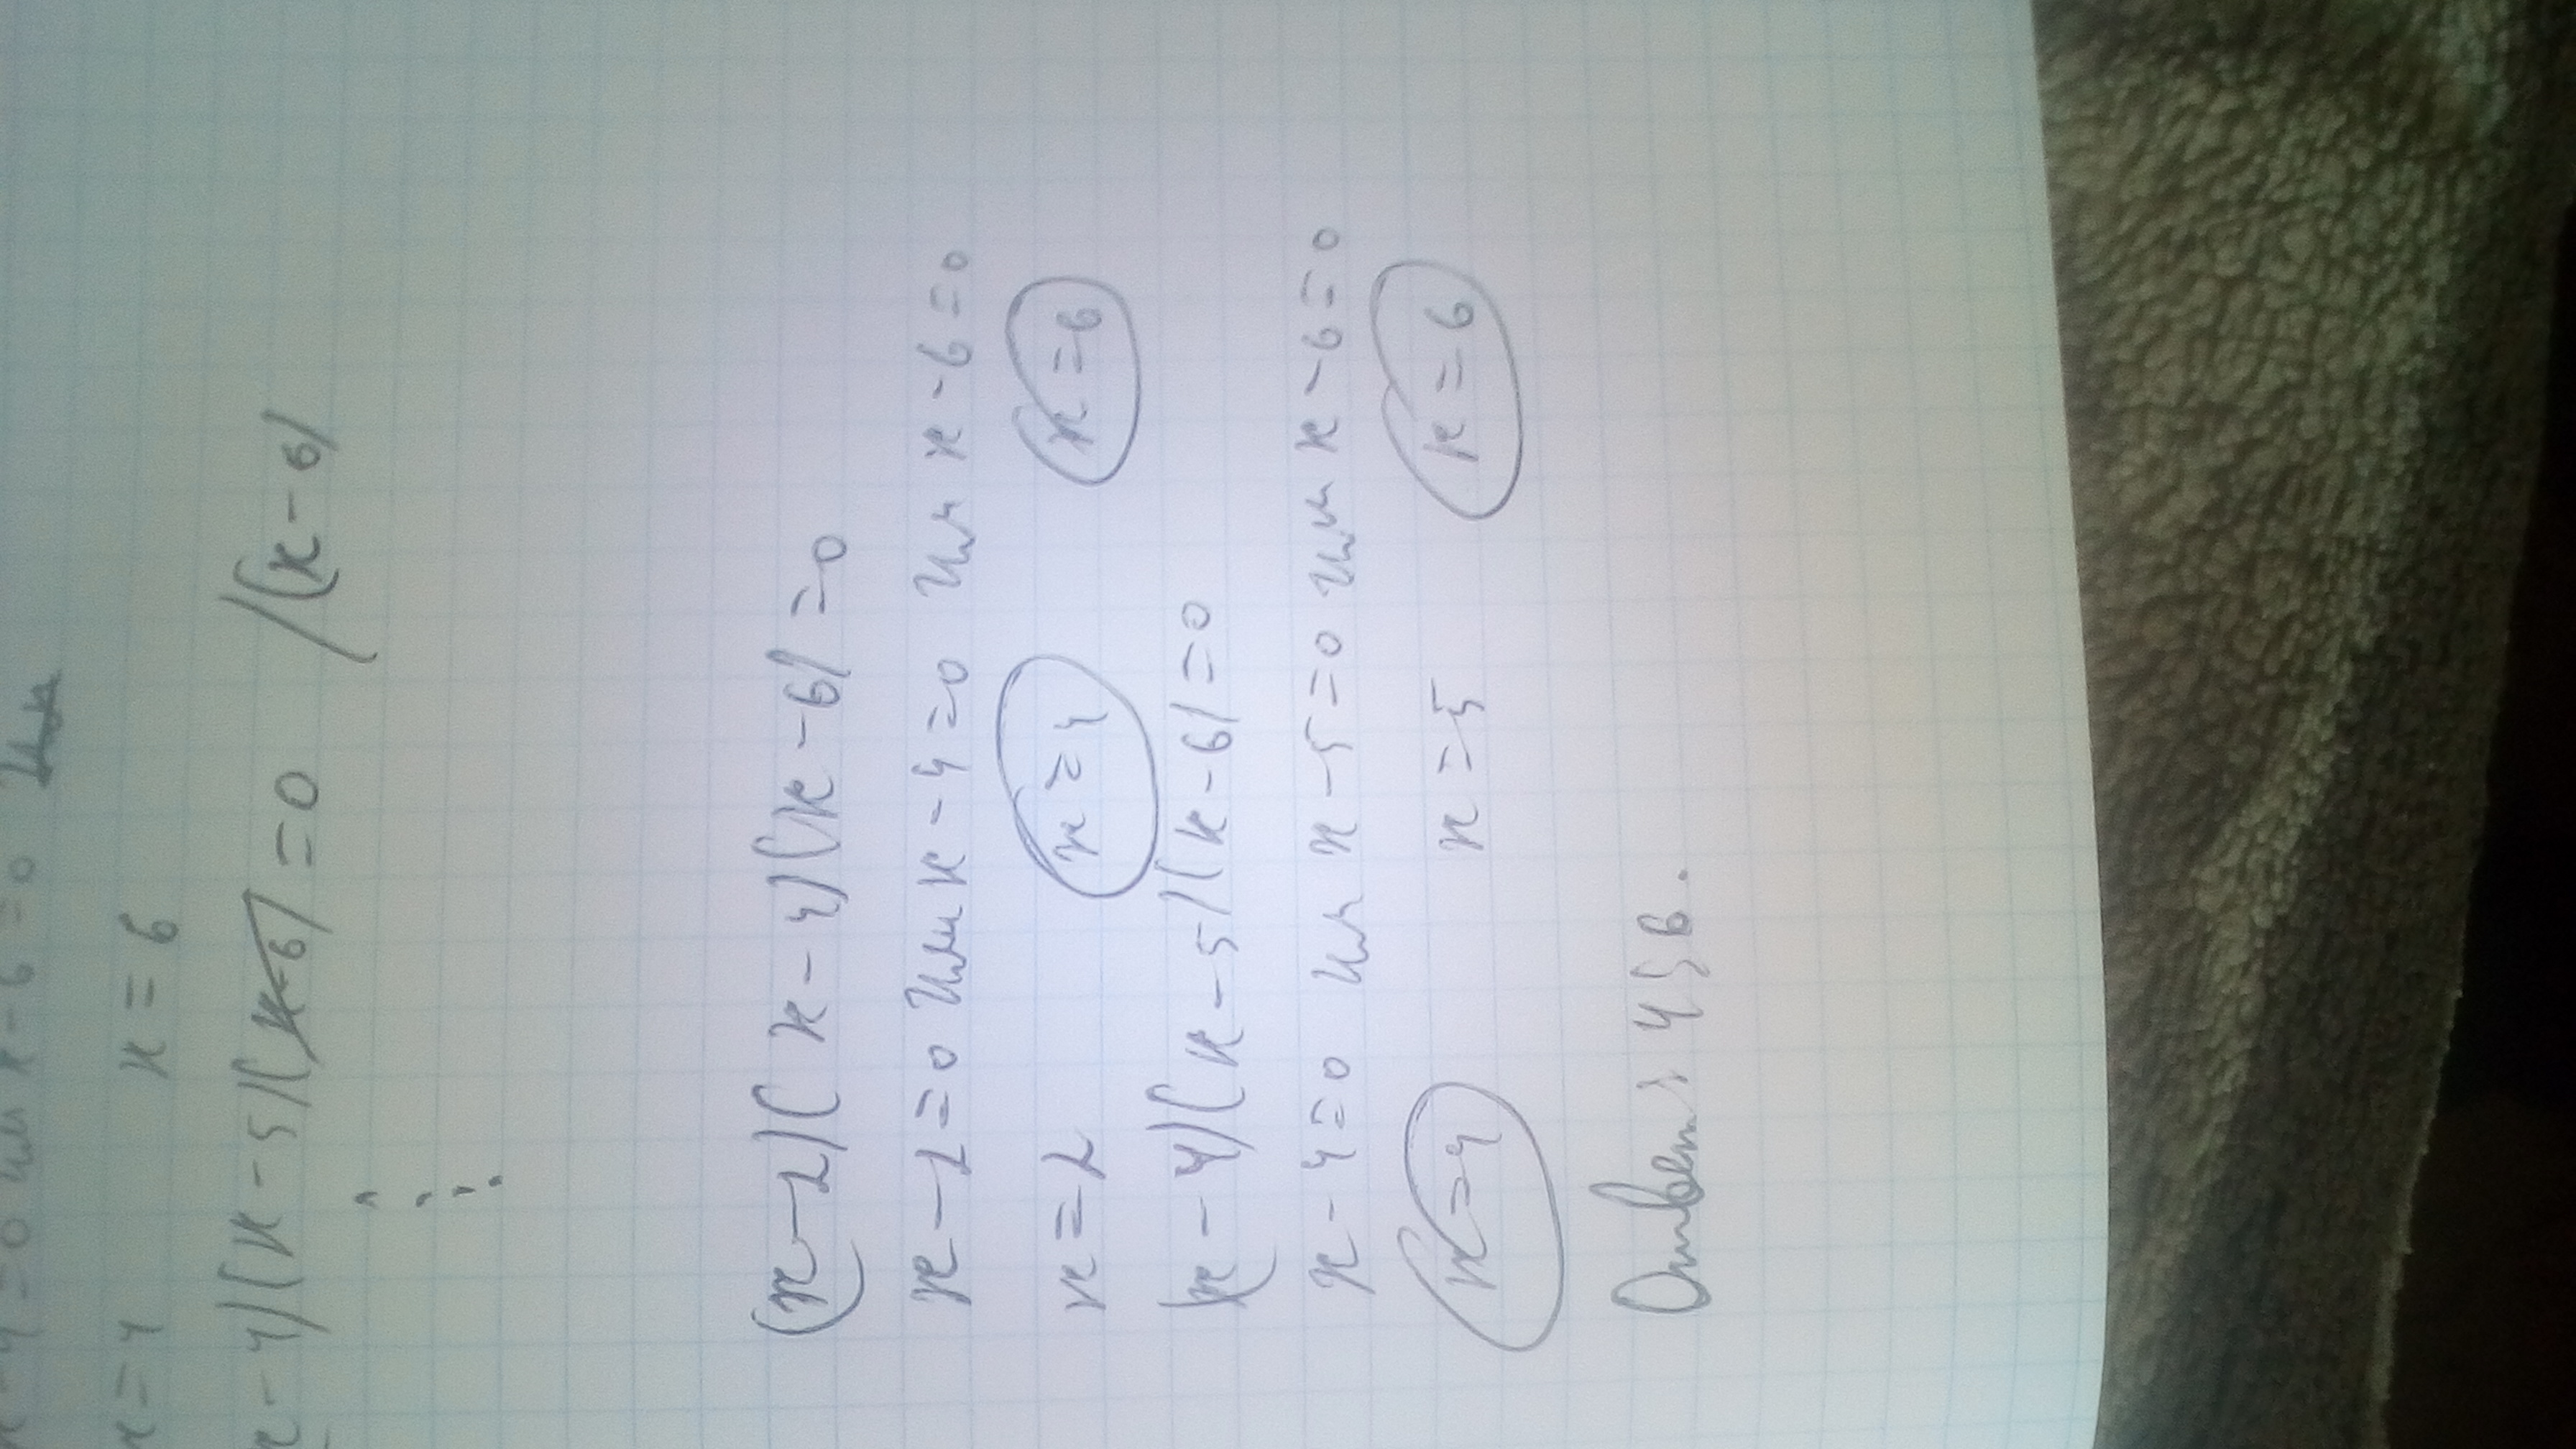 x-4=0 или x-6=0
x=4 x=6
x-4)(x-5)(x-6)=0 /(x-6)
(x-2)(x-4)(x-6)=0
x-2=0 или x-4=0 или x-6=0
x=2 x=4 x=6
(x-4)(x-5)(x-6)=0
x-4=0 или x-5=0 или x-6=0
x=4 x=5 x=6
Ответ: 4 5 6.